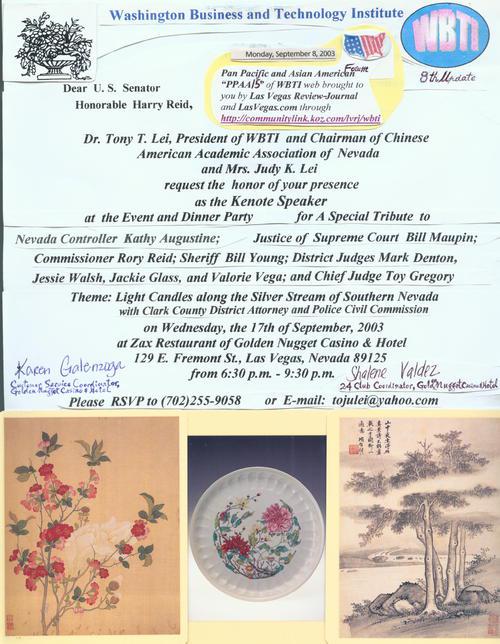 Washington Business and Technology Institute
WBTI
Monday, September 8, 2003
8th Update
Dear U. S. Senator
Honorable Harry Reid,
Pan Pacific and Asian American Forum
"PPAAF" of WBTI web brought to
you by Las Vegas Review-Journal
and LasVegas.com through
http://communitylink.koz.com/lvrj/wbti
Dr. Tony T. Lei, President of WBTI and Chairman of Chinese
American Academic Association of Nevada
and Mrs. Judy K. Lei
request the honor of your presence
as the Kenote Speaker
at the Event and Dinner Party for A Special Tribute to
Nevada Controller Kathy Augustine; Justice of Supreme Court Bill Maupin;
Commissioner Rory Reid; Sheriff Bill Young; District Judges Mark Denton,
Jessie Walsh, Jackie Glass, and Valorie Vega; and Chief Judge Toy Gregory
Theme: Light Candles along the Silver Stream of Southern Nevada
with Clark County District Attorney and Police Civil Commission
on Wednesday, the 17th of September, 2003
at Zax Restaurant of Golden Nugget Casino & Hotel
129 E. Fremont St., Las Vegas, Nevada 89125
from 6:30 p.m. - 9:30 p.m.
Karen
Customer Service Coordinator,
Golden Nugget Casino & Hotel
Sharlene Valdez
24 Club Coordinator, Gold Nugget Casino & Hotel
Please RSVP to (702)255-9058 or E-mail: tojulei@yahoo.com